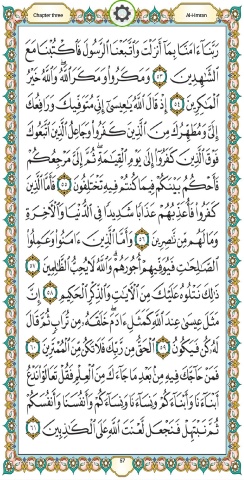 Chapter three Al-Imran
رَبَّنَآ ءَامَنَّا بِمَآ أَنزَلْتَ وَٱتَّبَعْنَا ٱلرَّسُولَ فَٱكْتُبْنَا مَعَ
ٱلشَّٰهِدِينَ ٥٣ وَمَكَرُوا۟ وَمَكَرَ ٱللَّهُ ۖ وَٱللَّهُ خَيْرُ
ٱلْمَٰكِرِينَ ٥٤ إِذْ قَالَ ٱللَّهُ يَٰعِيسَىٰٓ إِنِّى مُتَوَفِّيكَ وَرَافِعُكَ
إِلَىَّ وَمُطَهِّرُكَ مِنَ ٱلَّذِينَ كَفَرُوا۟ وَجَاعِلُ ٱلَّذِينَ ٱتَّبَعُوكَ
فَوْقَ ٱلَّذِينَ كَفَرُوٓا۟ إِلَىٰ يَوْمِ ٱلْقِيَٰمَةِ ۖ ثُمَّ إِلَىَّ مَرْجِعُكُمْ
فَأَحْكُمُ بَيْنَكُمْ فِيمَا كُنتُمْ فِيهِ تَخْتَلِفُونَ ٥٥ فَأَمَّا ٱلَّذِينَ
كَفَرُوا۟ فَأُعَذِّبُهُمْ عَذَابًا شَدِيدًا فِى ٱلدُّنْيَا وَٱلْءَاخِرَةِ
وَمَا لَهُم مِّن نَّٰصِرِينَ ٥٦ وَأَمَّا ٱلَّذِينَ ءَامَنُوا۟ وَعَمِلُوا۟
ٱلصَّٰلِحَٰتِ فَيُوَفِّيهِمْ أُجُورَهُمْ ۗ وَٱللَّهُ لَا يُحِبُّ ٱلظَّٰلِمِينَ ٥٧
ذَٰلِكَ نَتْلُوهُ عَلَيْكَ مِنَ ٱلْءَايَٰتِ وَٱلذِّكْرِ ٱلْحَكِيمِ ٥٨ إِنَّ
مَثَلَ عِيسَىٰ عِندَ ٱللَّهِ كَمَثَلِ ءَادَمَ ۖ خَلَقَهُۥ مِن تُرَابٍ ثُمَّ قَالَ
لَهُۥ كُن فَيَكُونُ ٥٩ ٱلْحَقُّ مِن رَّبِّكَ فَلَا تَكُن مِّنَ ٱلْمُمْتَرِينَ ٦٠
فَمَنْ حَآجَّكَ فِيهِ مِنۢ بَعْدِ مَا جَآءَكَ مِنَ ٱلْعِلْمِ فَقُلْ تَعَالَوْا۟ نَدْعُ
أَبْنَآءَنَا وَأَبْنَآءَكُمْ وَنِسَآءَنَا وَنِسَآءَكُمْ وَأَنفُسَنَا وَأَنفُسَكُمْ
ثُمَّ نَبْتَهِلْ فَنَجْعَل لَّعْنَتَ ٱللَّهِ عَلَى ٱلْكَٰذِبِينَ ٦١
57